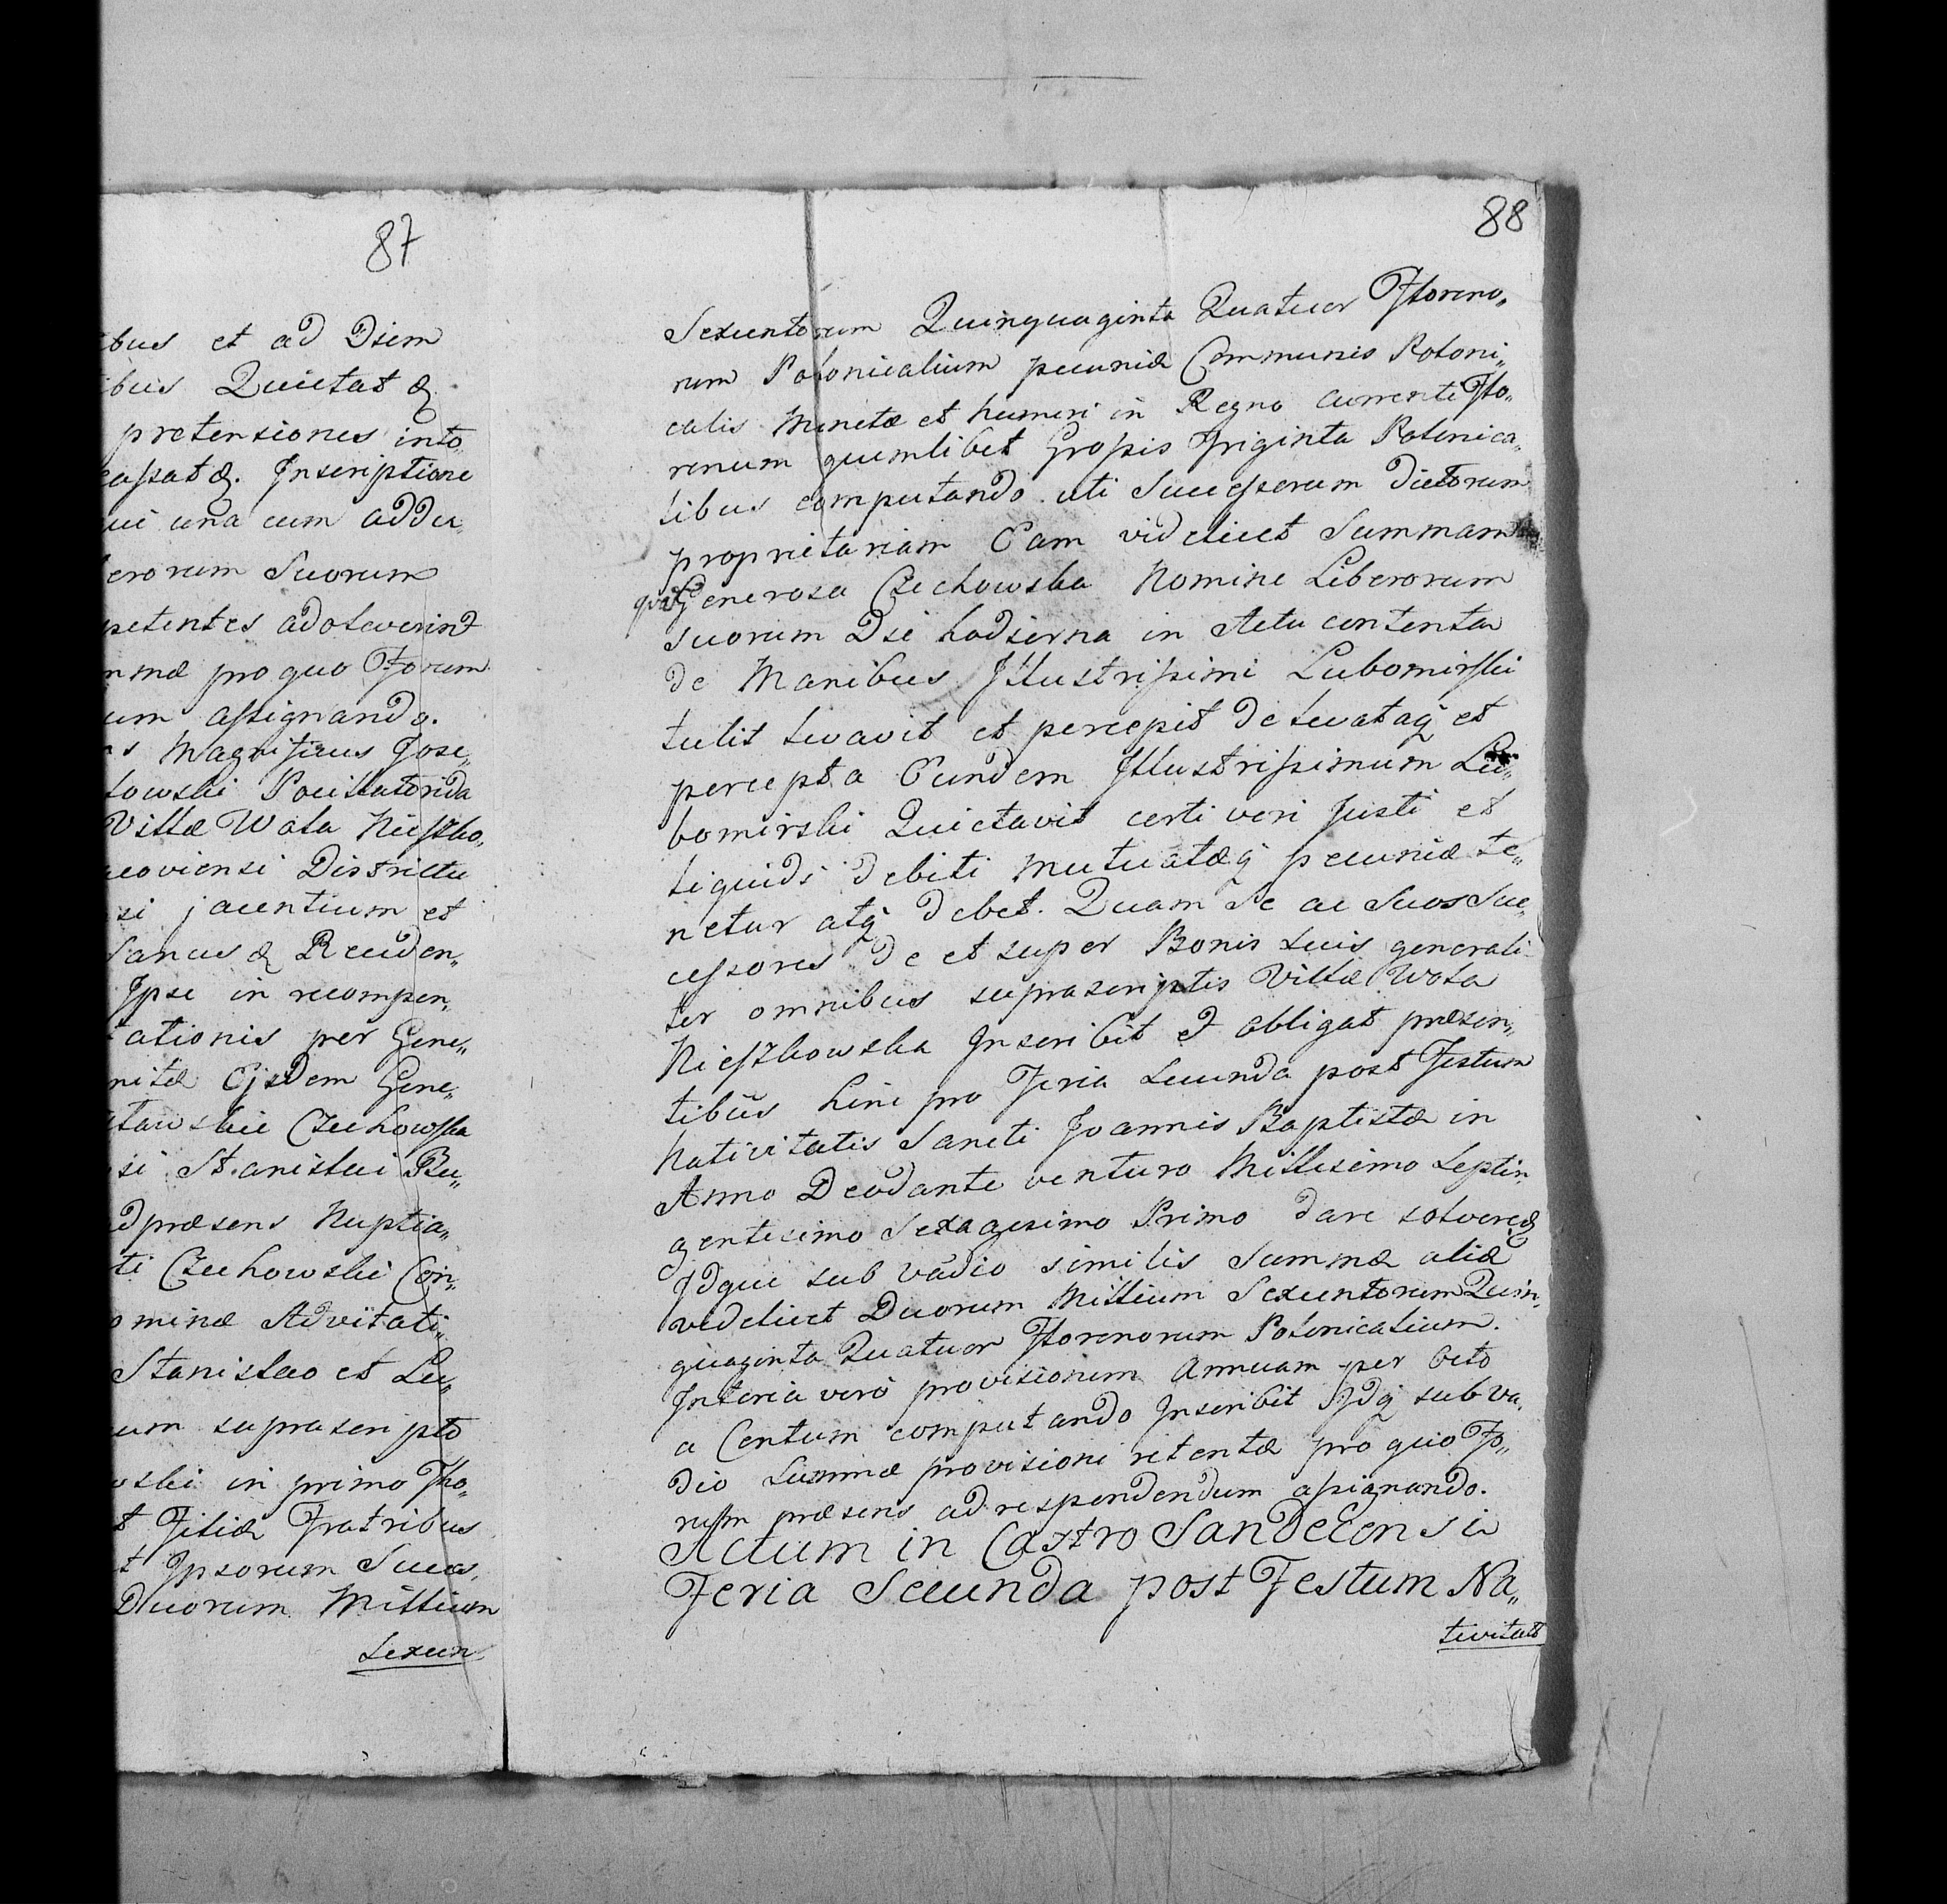 87
ibus et ad Diem
ibus Quietat &
pretensiones into
cassat &. Inscriptione
qui una cum addu
erorum Suorum
petentes adoleverint
mmæ pro quo Forum
um assignando.
Magnificus Jose„
lowski Pocillatorida
Villæ Wola Nieszko„
acoviensi Districtu
si jacentium et
Sanus & Reciden„
Ipse in recompen„
tationis per Gene„
nitæ Ejsdem Gene„
Czechowska
si Stanislai Ru„
adpræsens Nuptia„
ti Czechowski Con„
omine Advitati„
Stanislao et Lu„
um suprascripto
wski in primo Tho„
t Filiæ Fratribus
t Ipsorum Succes„
Duorum Millium
Sexcen
88
Sexcentorum Quinquaginta Quatuor Floreno„
rum Polonicalium pecuniæ Communis Poloni„
calis Monetæ et numeri in Regno currenti Flo„
renum quemlibet Grossis Triginta Polonica„
libus computando uti Successorum dictorum
proprietariam Eam videlicet Summam
quam Generosa Czechowska Nomine Liberorum
suorum Die hodierna in Actu contenta
de Manibus Illustrissimi Lubomirski
tulit levavit et percepit de levataq et
percepta Eundem Illustrissimum Lu„
bomirski Quietavit certi veri Justi et
liquidi debiti mutuatæq pecuniæ te„
netur atq debet. Quam Se ac Suos Suc„
cessores de et super Bonis suis generali„
ter omnibus suprascriptis Villæ Wola
Nieszkowska Inscribit et obligat præsen„
tibus hinc pro Feria Secunda post Festum
Nativitatis Sancti Joannis Baptistæ in
Anno Deodante venturo Millesimo Septin„
gentesimo Sexagesimo Primo dare solvereq
Idque sub vadio similis Summæ aliæ
videlicet Duorum Millium Sexcentorum Quin„
quaginta Quatuor Florenorum Polonicalium.
Interia verò provisionem Annuam per Octo
a Centum computando Inscribit Idq sub va„
dio Summæ provisioni retentæ pro quo Fo„
rum præsens ad respondendum assignando.
Actum in Castro Sandecensi
Feria Secunda post Festum Na„
tivitatis